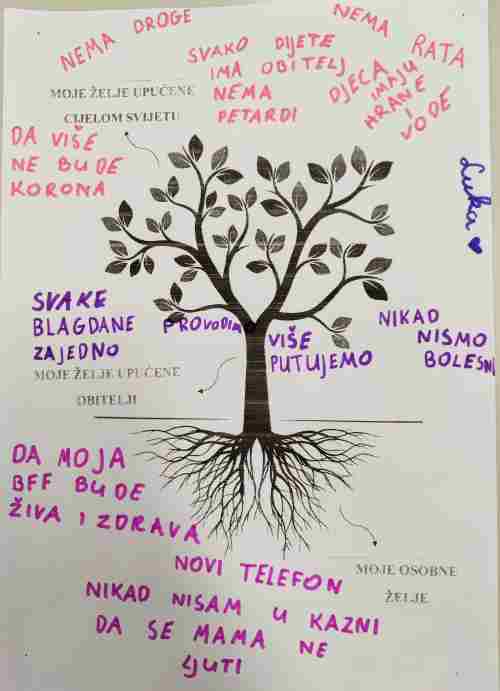 NEMA DROGE
NEMA RATA
SVAKO DIJETE
IMA OBITELJ
NEMA
PETARDI
DJECA
IMAJU
HRANE
I
VODE
MOJE ŽELJE UPUĆENE
CIJELOM SVIJETU
DA VIŠE
NE BUDE
KORONA
Luka
SVAKE
BLAGDANE PROVODIM
ZAJEDNO
VIŠE
PUTUJEMO
NIKAD
NISMO
BOLESNI
MOJE ŽELJE UPUĆENE
OBITELJI
DA MOJA
BFF BUDE
ŽIVA I ZDRAVA
NOVI TELEFON
MOJE OSOBNE
ŽELJE
NIKAD NISAM U KAZNI
DA SE MAMA NE
LJUTI